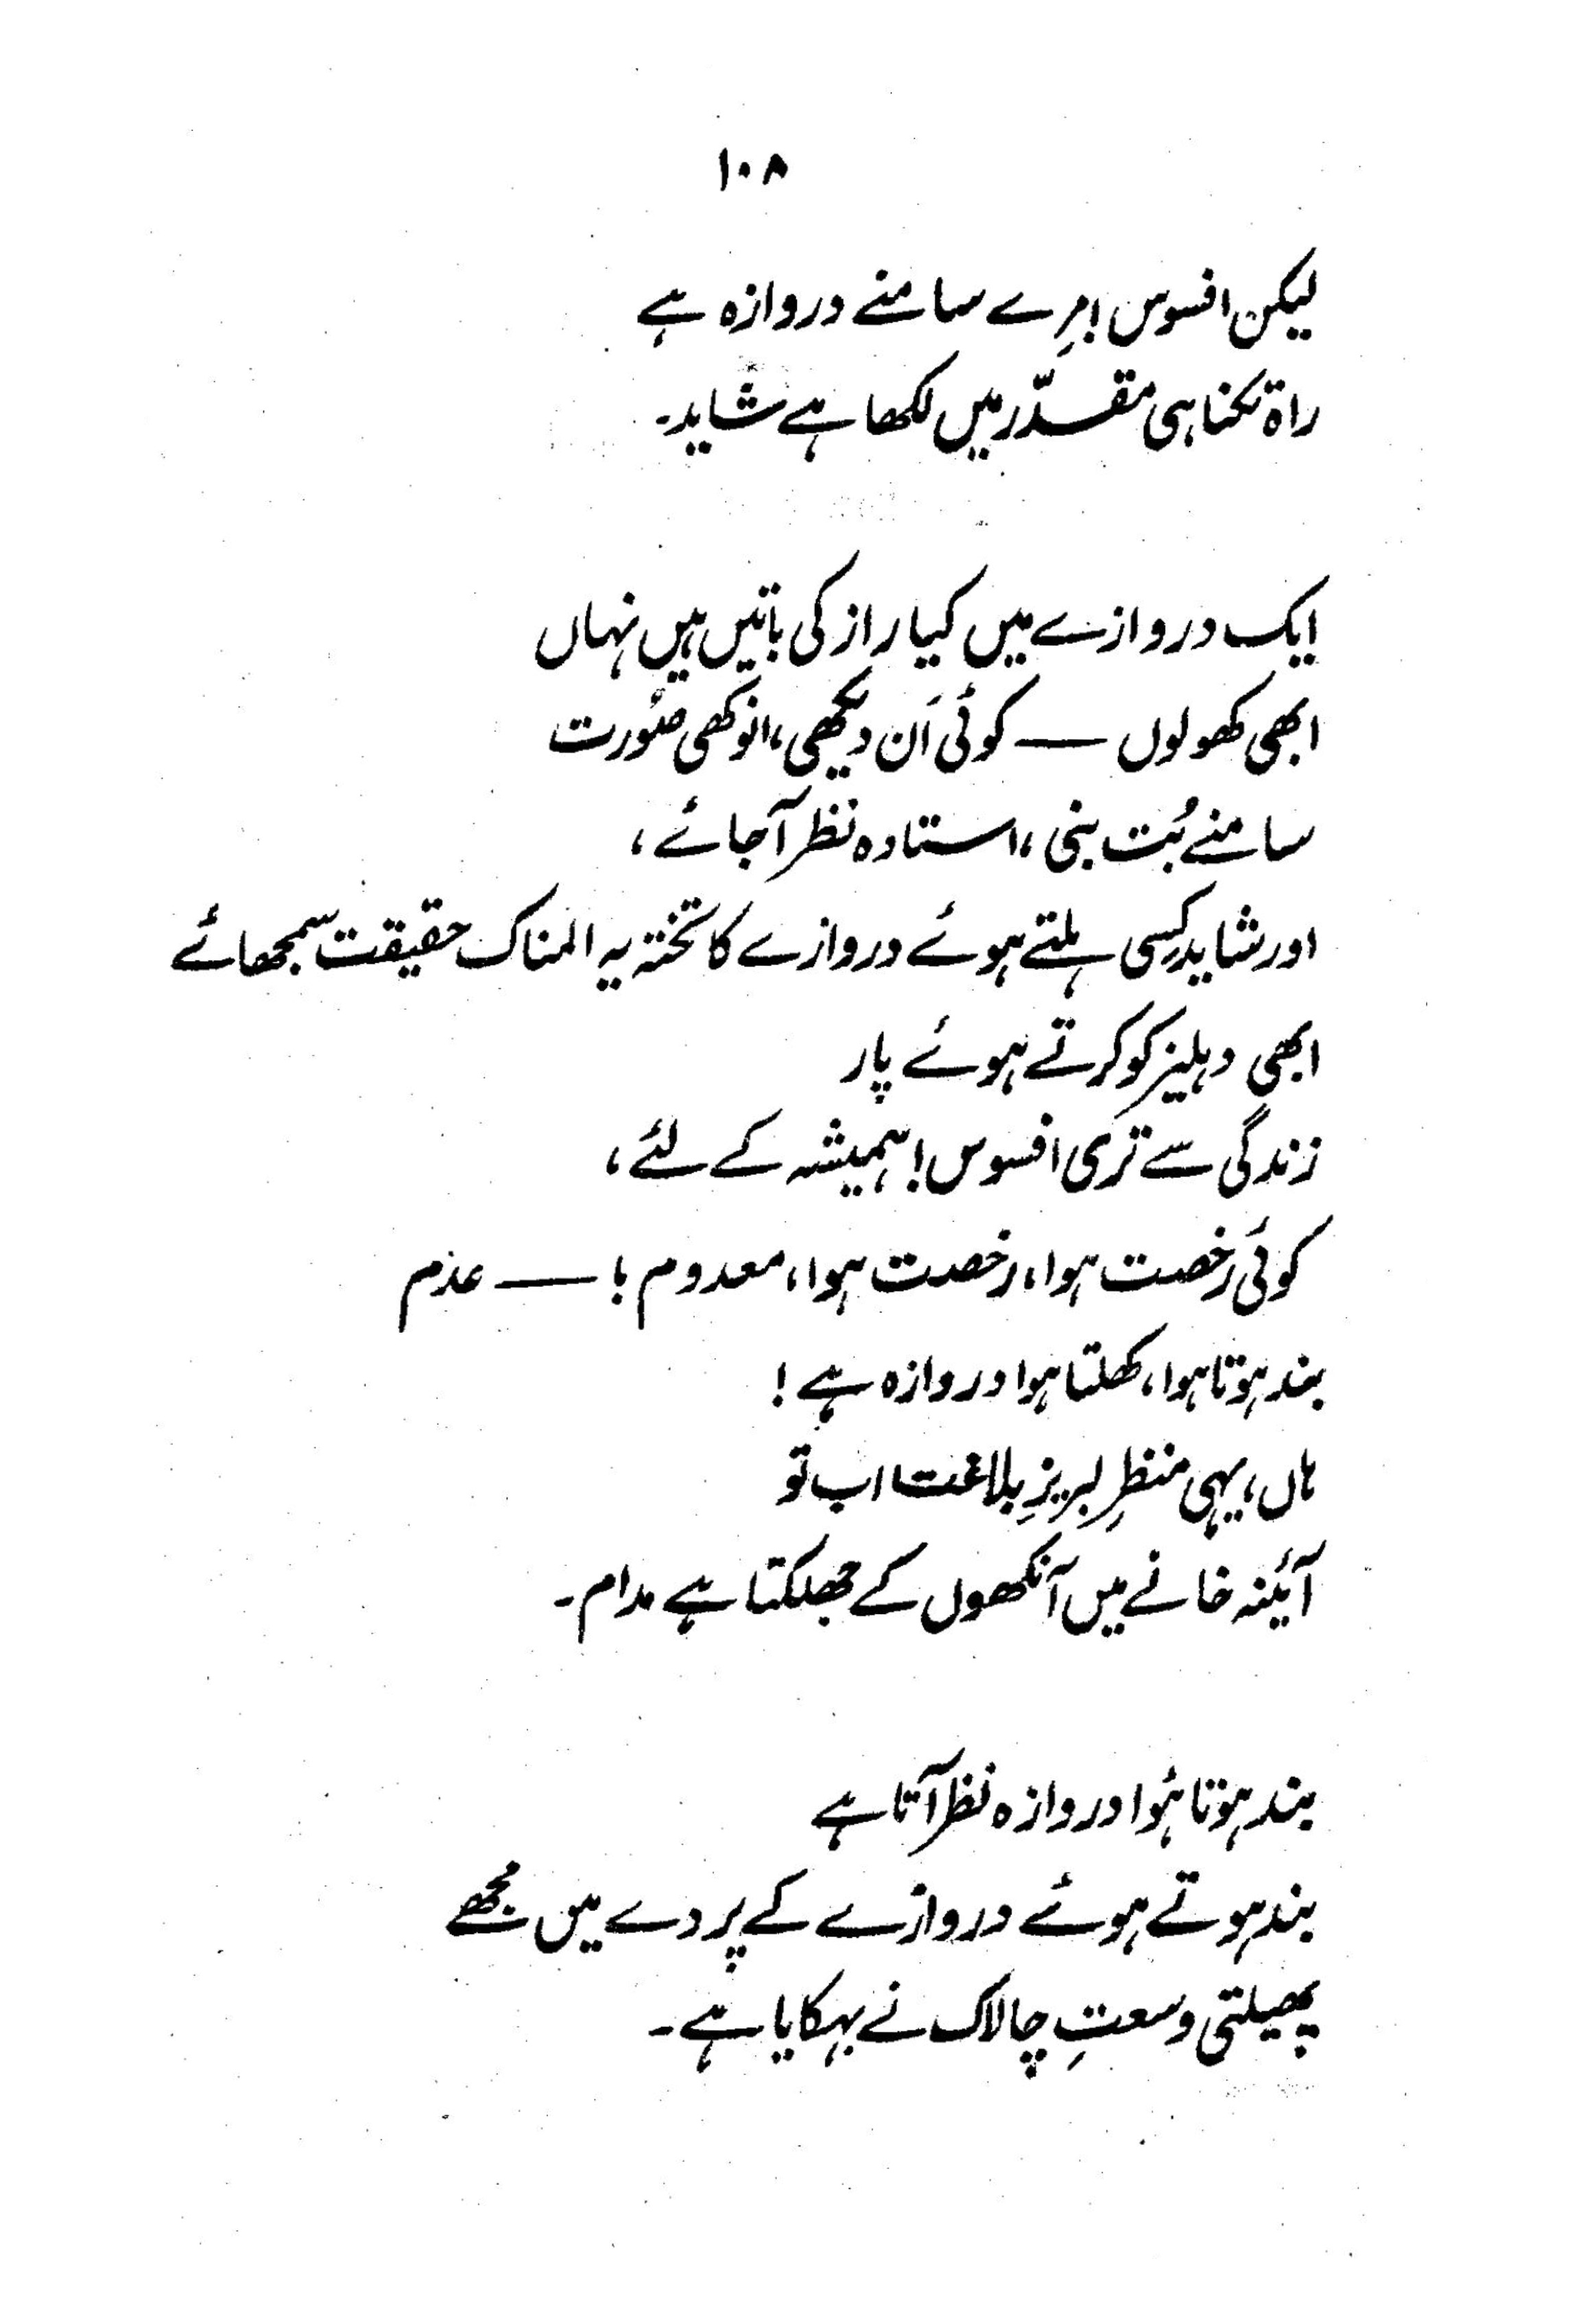 ۱۰۸
لیکن افسوس! مِرے سامنے دروازہ ہے
راہ تکنا ہی مقدّر میں لکھا ہے شاید۔
ایک دروازے میں کیا راز کی باتیں ہیں نہاں
ابھی کھولوں — کوئی اَن دیکھی، انوکھی صُورت
سامنے بُت بنی، استادہ نظر آجائے،
اور شاید کسی ہلتے ہوئے دروازے کا تختہ یہ المناک حقیقت سمجھائے
ابھی دہلیز کو کرتے ہوئے پار
زندگی سے تری افسوس! ہمیشہ کے لئے،
کوئی رخصت ہوا، رخصت ہوا، معدوم! — عدم
بند ہوتا ہوا، کھلتا ہوا دروازہ ہے!
ہاں، یہی منظرِ لبریزِ بلاغت اب تو
آئینہ خانے میں آنکھوں کے جھلکتا ہے مدام۔
بند ہوتا ہُوا دروازہ نظر آتا ہے
بند ہوتے ہوئے دروازے کے پردے میں مُجھے
پھیلتی وسعتِ چالاک نے بہکایا ہے۔